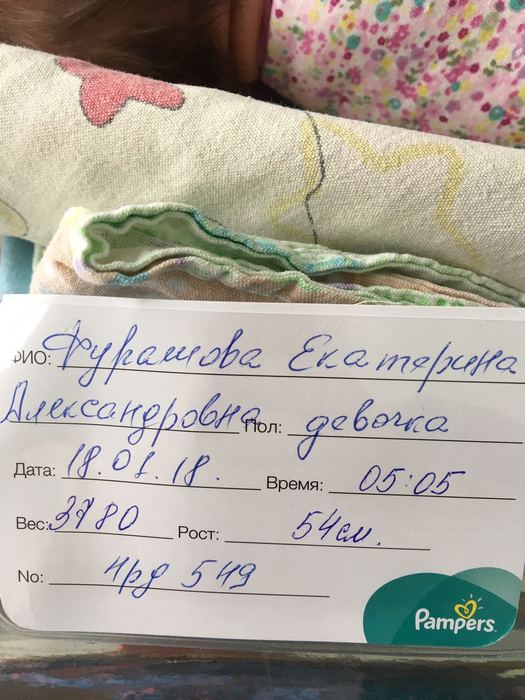 ФИО: Фурашова Екатерина
Александровна Пол: девочка
Дата: 18.01.18. Время: 05:05
Вес: 3780 Рост: 54см.
No: 549
Pampers